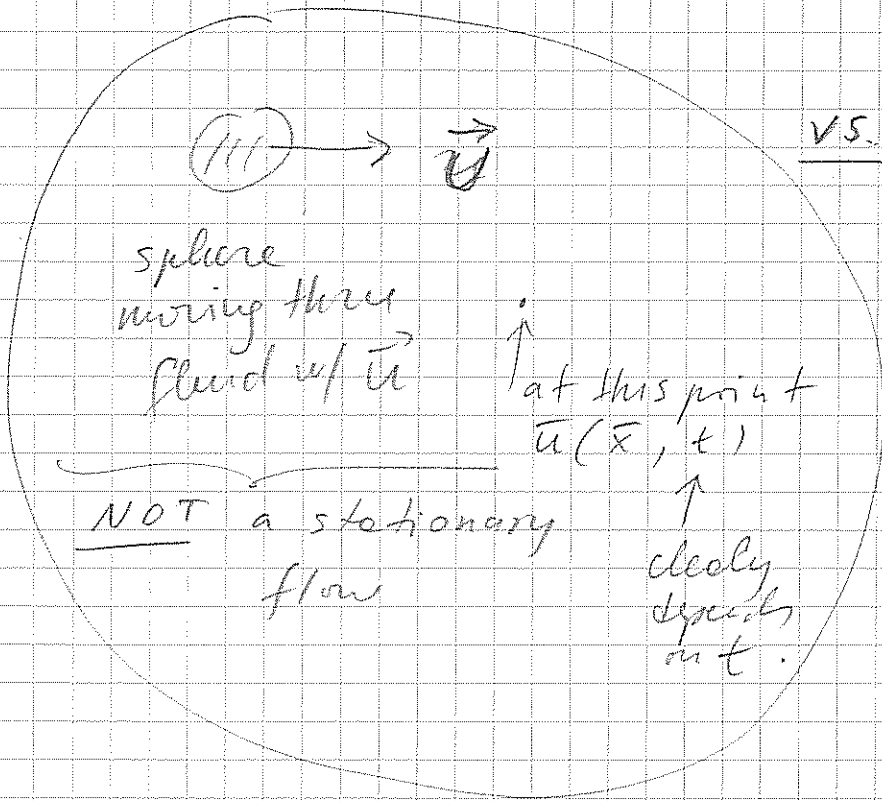 u⃗
vs.
sphere
moving thru
fluid w/ u⃗
at this point
ū(x̄, t)
NOT a stationary
flow
clearly
depends
on t.